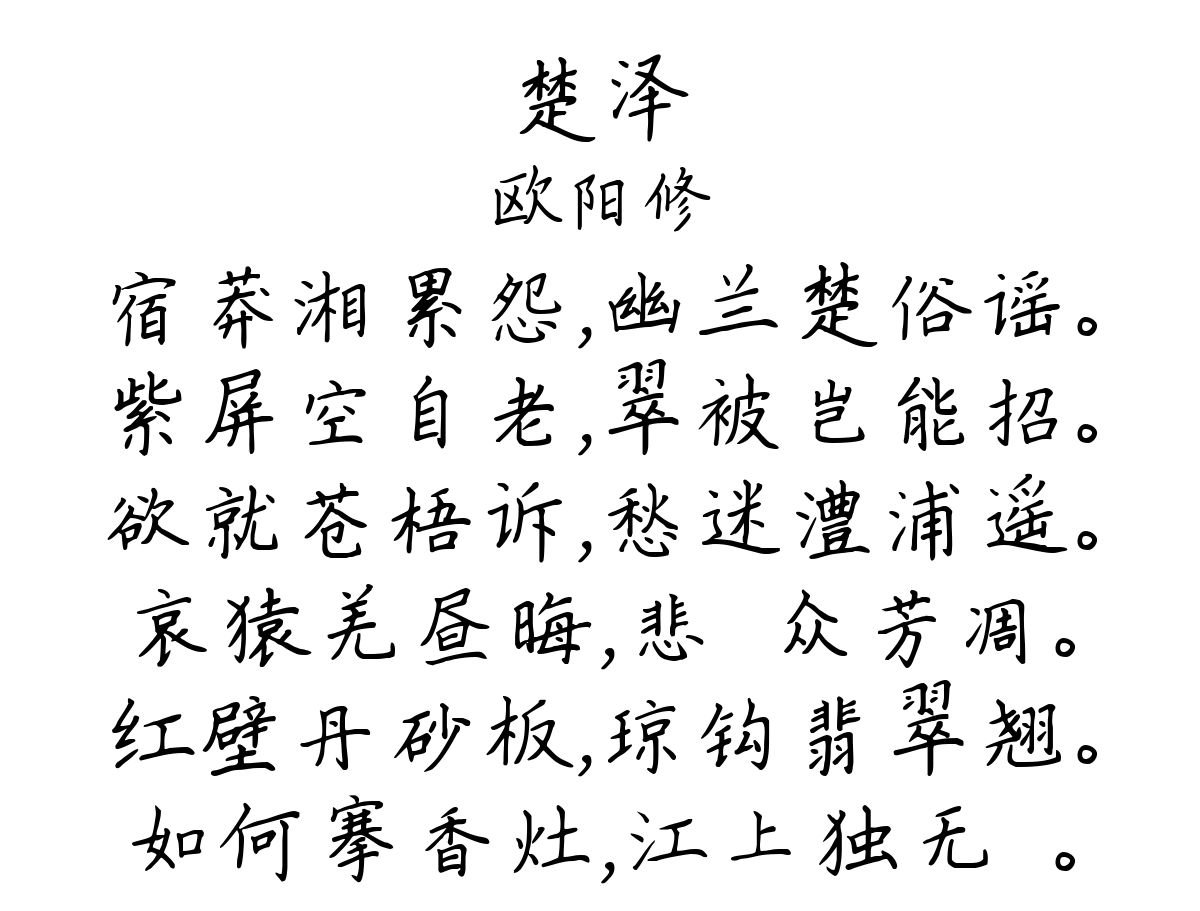 楚泽
欧阳修
宿莽湘累怨,幽兰楚俗谣。
紫屏空自老,翠被岂能招。
欲就苍梧诉,愁迷澧浦遥。
哀猿羌昼晦,悲 众芳凋。
红壁丹砂板,琼钩翡翠翘。
如何搴香灶,江上独无 。